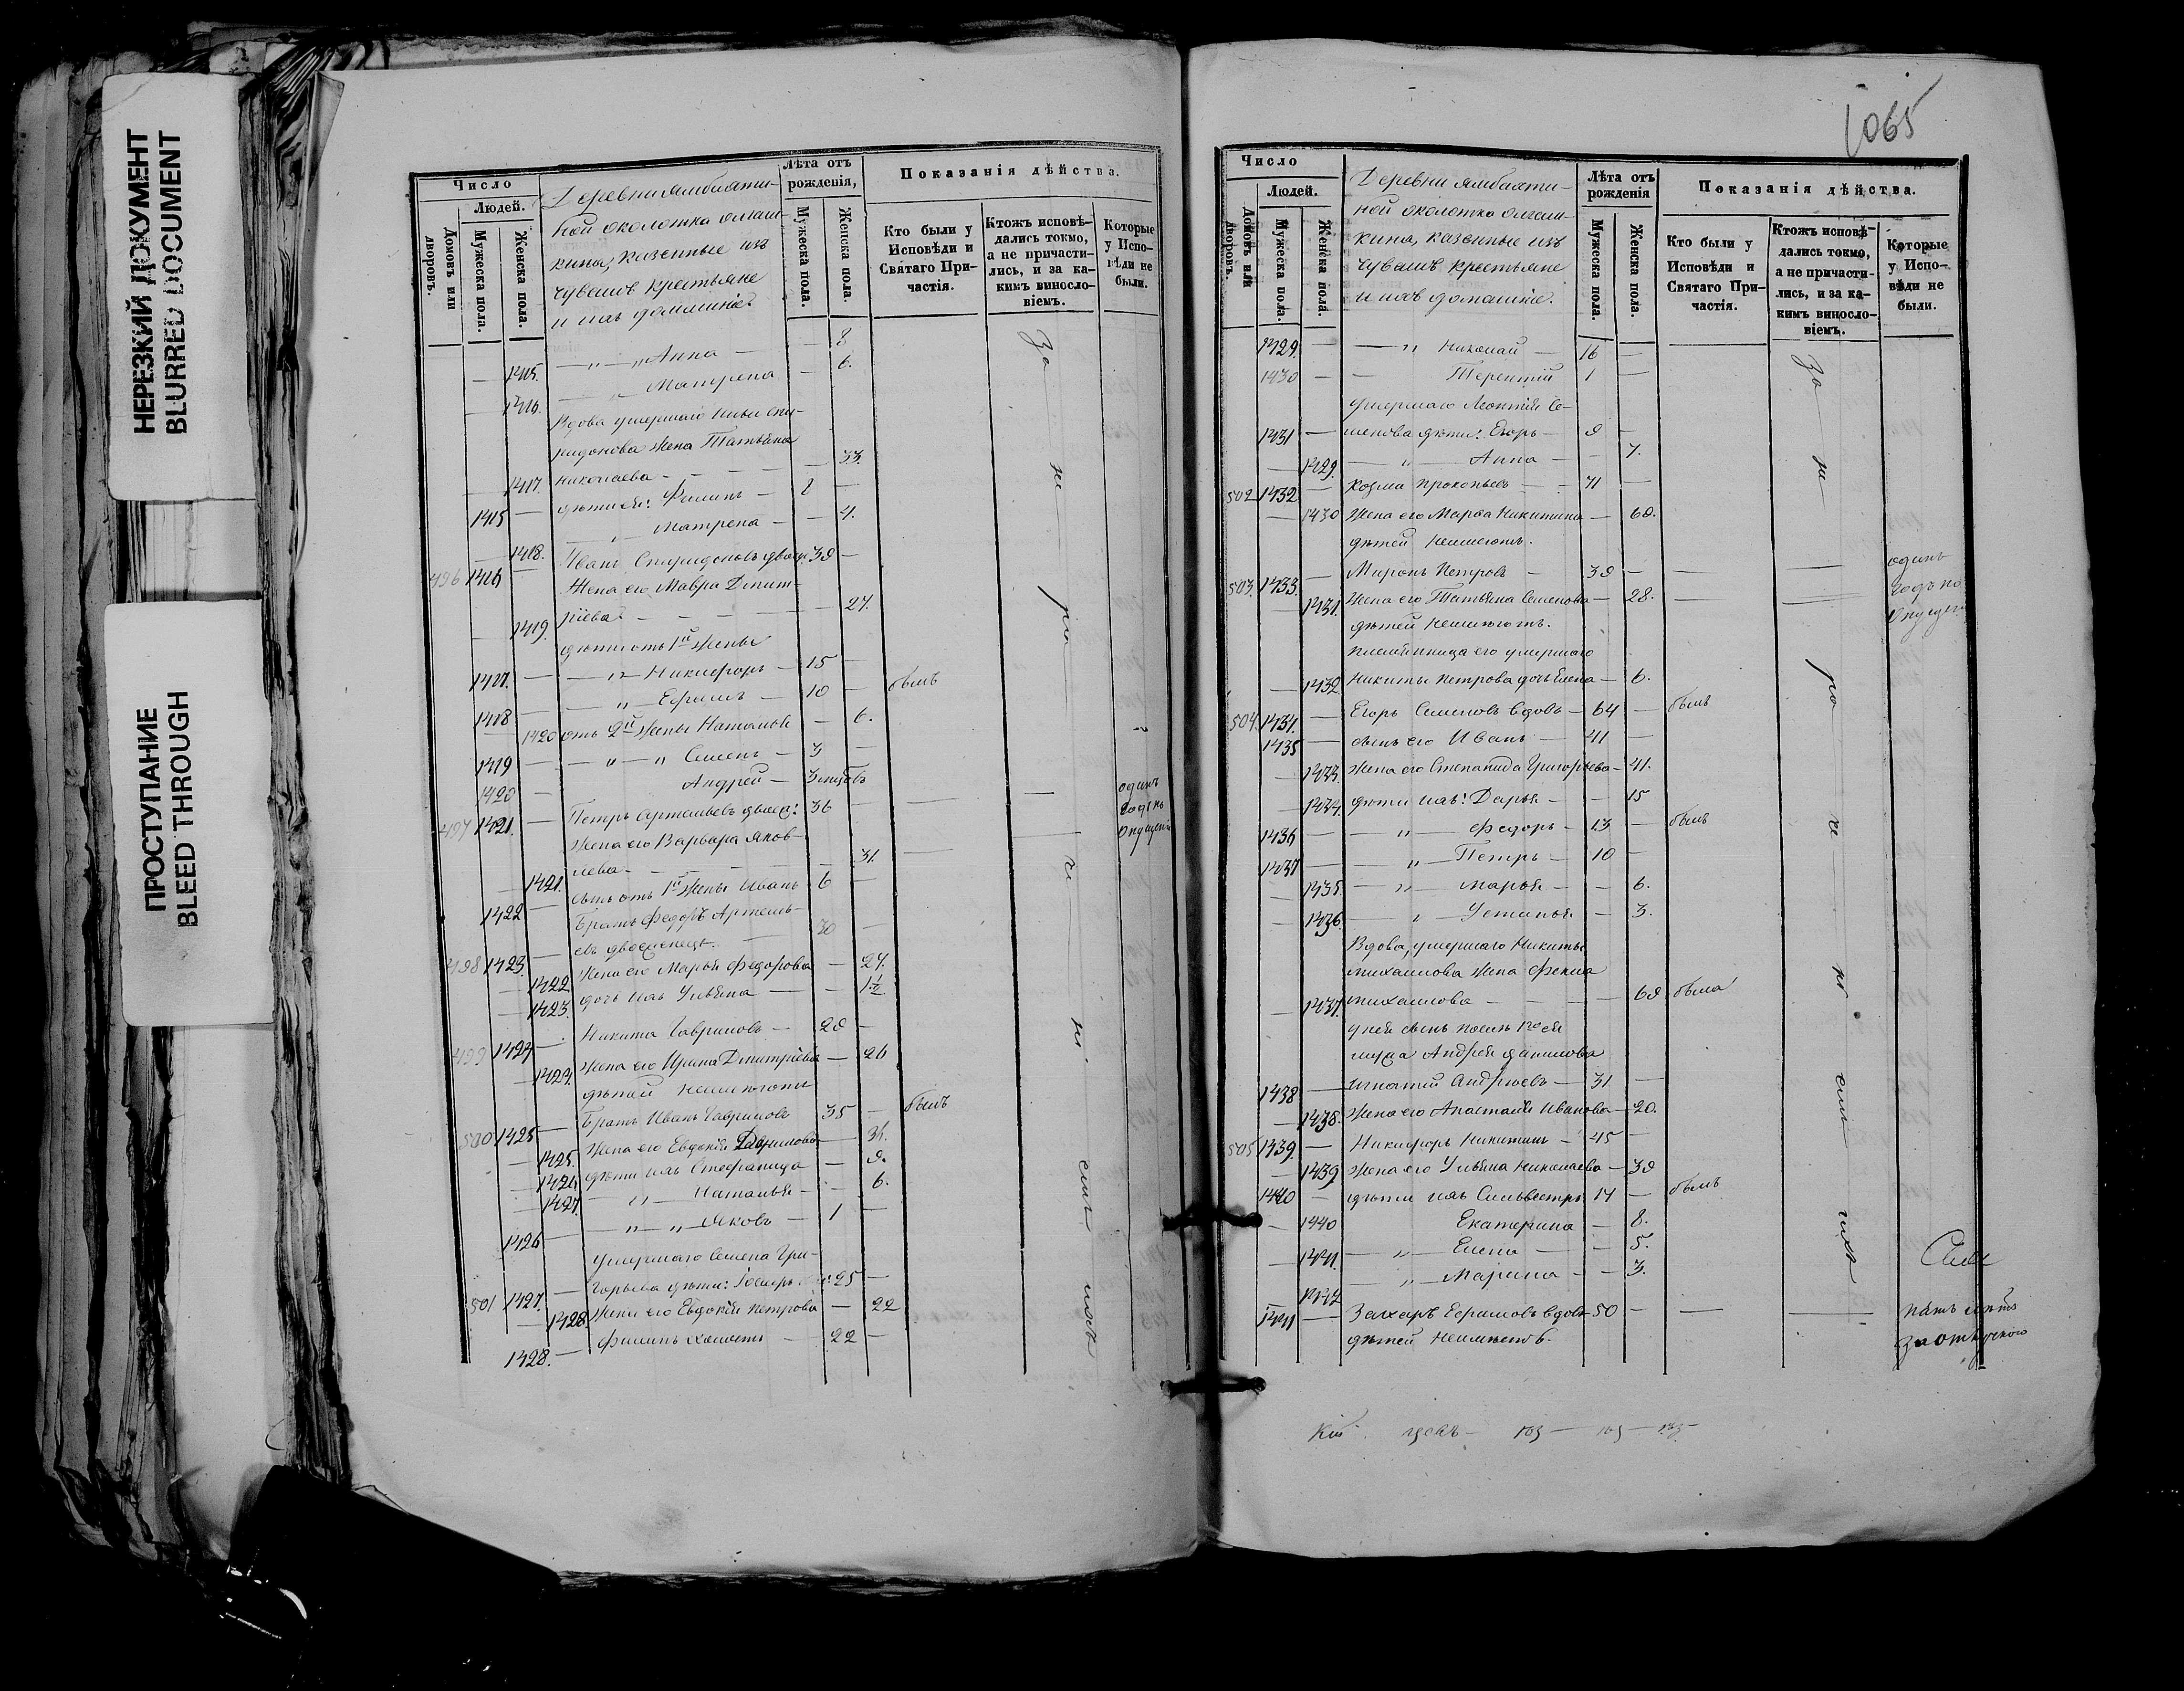 НЕРЕЗКИЙ ДОКУМЕНТ
BLURRED DOCUMENT
ПРОСТУПАНИЕ
BLEED THROUGH
Число
Людей.
Домовъ или дворовъ.
Мужеска пола.
Женска пола.
Деревни Ямбахти-
ной околотка
кина, казенные изъ
чувашъ крестьяне
и ихъ домашніе.
Лѣта отъ рожденія,
Мужеска пола.
Женска пола.
Показанія дѣйства.
Кто были у Исповѣди и Святаго Причастія.
Ктожъ исповѣ-
дались токмо,
а не причасти-
лись, и за ка-
кимъ винословіемъ.
Которые
у Испо-
вѣди не
были.
1415. — „ — „ Анна — — 8
1416. — „ Матрена — 6.
Вдова умершаго
жена Татьяна
1417. Николаева - - - — 33.
1415 — дѣти ея: Филипъ — 2 —
1418. — „ Матрена — — 4.
496 1416 — Иванъ Спиридоновъ 39 —
Жена его Мавра Дмит-
1419 ріева - - - — 27.
дѣти отъ 1й жены
1417. — — „ — Никифоръ — 15 —
1418 — — „ Ефимъ — 10 — былъ
1420 отъ 2й жены Наталья — 6.
1419 — — „ — „ Семенъ — 3 —
1420 — Андрей — 3
497 1421 — Петръ Артемьевъ 36 — одинъ
Жена его Варвара Яков-
1421. лева - - - — 31.
1422 — сынъ отъ 1й жены Иванъ 6 —
Братъ Федоръ Артемь-
498 1423. — евъ 30 —
1422 Жена его Марья Федорова — 27.
1423. дочь ихъ Ульяна — — 1½
499 1424 — Никита Гавриловъ — 28 —
1424. Жена его Ирина Дмитріева — 26
дѣтей неимѣютъ
500 1425 — Братъ Иванъ Гавриловъ 35 — былъ
1425. Жена его Евдокія
1426 дѣти ихъ Стефанида — 9.
1427. — „ — Наталья - — 6.
1426 — — „ — „ — Яковъ — 1 —
умершаго Семена Гри-
501 1427. — горьева дѣти: 25 —
1428 Жена его Евдокія Петрова — 22
1428. — Филипъ холостъ — 22 —
1065
Число
Людей.
Домовъ или дворовъ.
Мужеска пола.
Женска пола.
Деревни Ямбахти-
ной околотка
кина, казенные изъ
чувашъ крестьяне
и ихъ домашніе.
Лѣта отъ рожденія
Мужеска пола.
Женска пола.
Показанія дѣйства.
Кто были у Исповѣди и Святаго Причастія.
Ктожъ исповѣ-
дались токмо,
а не причасти-
лись, и за ка-
кимъ винословіемъ.
Которые
у Испо-
вѣди не
были.
1429. — — „ Николай — 16 —
1430 — — Терентій 1 —
умершаго Леонтія Се-
1431 — менова дѣти: Егоръ — 9 —
1429. — „ — Анна — — 7.
502 1432 — Козма Прокопьевъ — 71 —
1430 Жена его Марѳа Никитина — 60.
дѣтей неимѣютъ.
503. 1433. — Миронъ Петровъ — 39 — одинъ
1431. Жена его Татьяна Семенова — 28.
дѣтей неимѣютъ.
племянница его умершаго
1432. Никиты Петрова дочь Елена — 6.
504. 1434. — Егоръ Семеновъ вдовъ — 64 — былъ
1435 — сынъ его Иванъ — 41 —
1433. Жена его Степанида Григорьева — 41.
1434 дѣти ихъ: Дарья — — 15
1436 — — „ — Федоръ — 13 — былъ
1437 — — „ — Петръ — 10 —
1435. — „ — Марья — — 6.
1436. — „ — Устинья — 3.
Вдова, умершаго Никиты
Михаилова жена Фекла
1437. Михаилова — — 69 была
у ней сынъ
мужа Андрея Данилова
1438 — Игнатій Андреевъ — 31 —
1438. Жена его Анастасія Иванова — 20.
505 1439. — Никифоръ Никитинъ — 45 —
1439 Жена его Ульяна Николаева — 39
1440 — дѣти ихъ Сильвестръ 14 — былъ
1440 Екатерина — 8.
1441. — „ — Елена — — 5.
1442 — „ — Марина - — 3.
1441 — Захаръ Ефимовъ вдовъ — 50 — пять лѣтъ
дѣтей неимѣетъ.